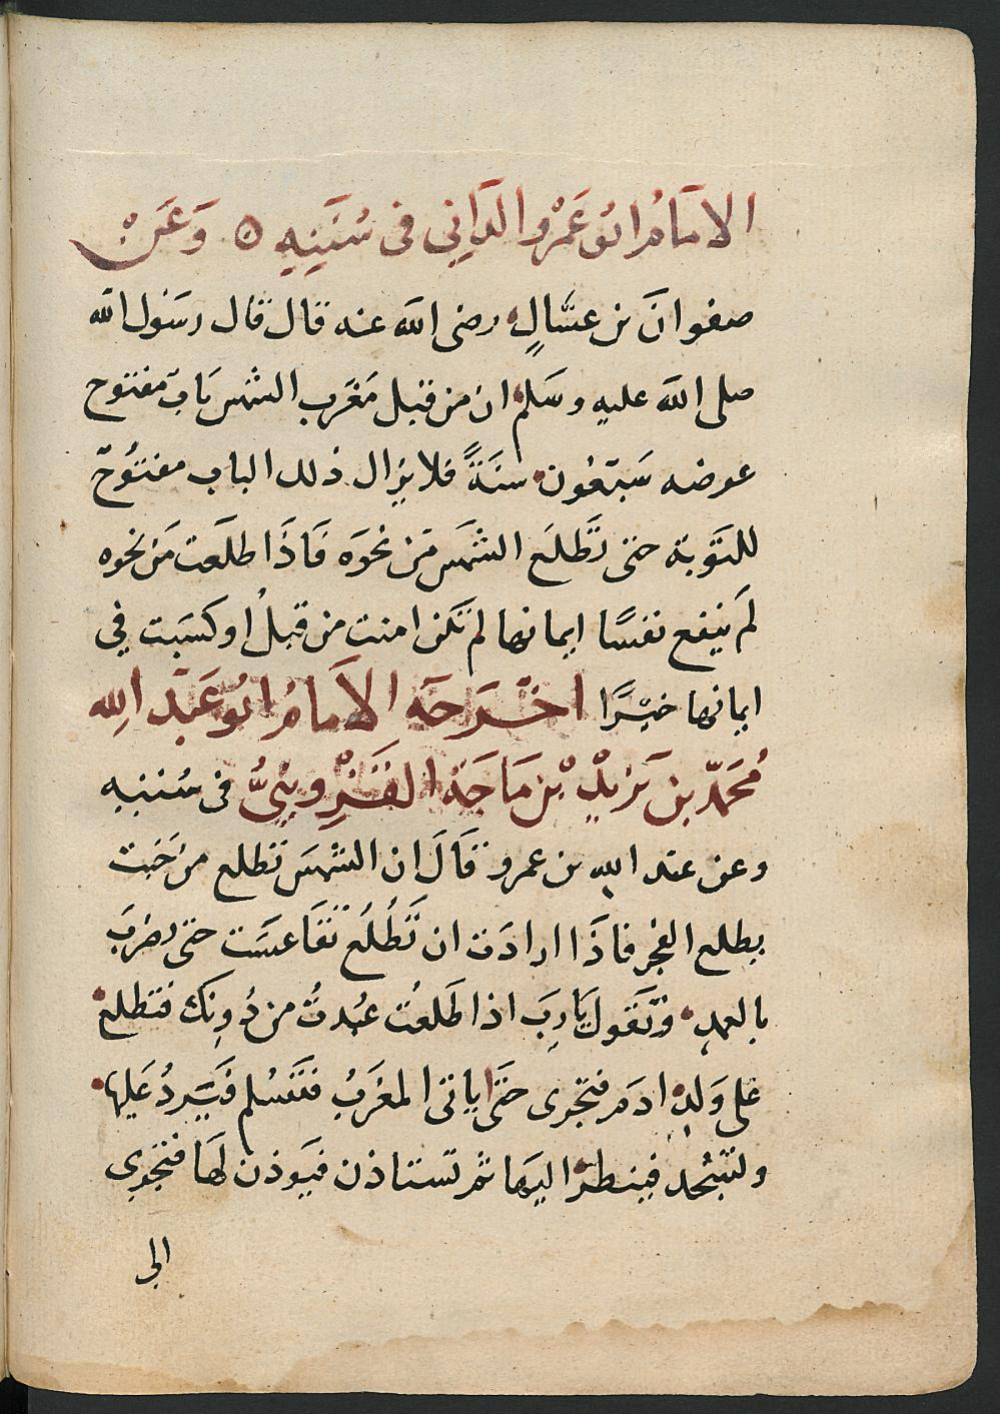 الامَامُ ابُو عَمْرو الدَانِي في سُنَنِهِ ٥ وَعَنْ
صفوانَ بن عسَّالٍ رضى الله عنه قال قال رسَول الله
صلى الله عليهِ وسَلم ان من قبل مَغرَب الشمس بَابٌ مفتوح
عوضه سَبعُون سنَةً فلا يزال ذلك الباب مفتوُح
للتَوبة حتى تَطلَع الشمَس مَن نحوَه فَاذَا طلعَت مَن نحوه
لَم ينفع نفسًا ايمانها لم تكن امنت من قبلُ او كسَبت في
ايمانها خيرًا اخرَجَه الامَامُ ابُو عَبْد الله
مُحَمّد بن يَزيدْ بْن مَاجَة القَزْوِينيُّ فى سُننهِ
وعن عبد الله بن عمرو قَالَ ان الشمسَ تطلع من حَيث
يطلع الفجر فاذَا ارادَت ان تَطْلُعُ تقَاعسَت حتى تضرَب
بالعمدِ وتَقول يَا ربَ اذا طَلعْت عُبدتُ من دُونِك فتطلع
على وَلدِ ادَم فتجرى حتَى ياتى المغرَبُ فتَسَلم فيَردُ عَليهَا
ولتسْجُد فينظر اليهَا ثم تستاذن فيَوذن لهَا فتجرى
الى